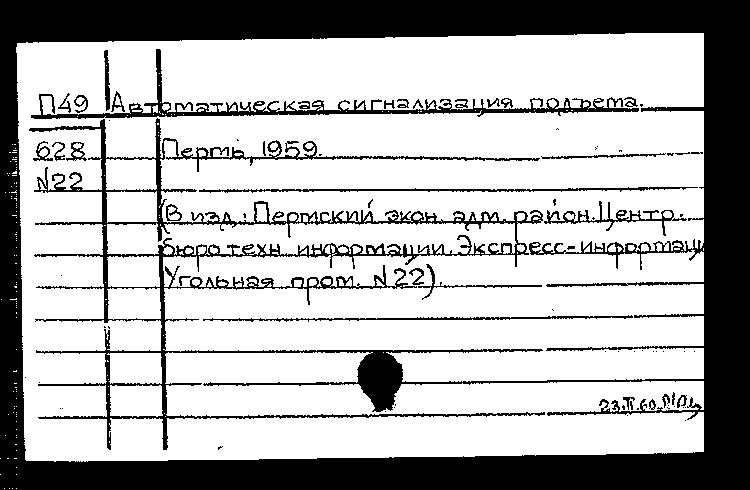 П49 Автоматическая сигнализация подъема.
628 Пермь, 1959.
N22
(В изд.: Пермский экон. адм. район. Центр.
бюро техн. информации. Экспресс-информаци
Угольная пром. N22).
23.IV.60.